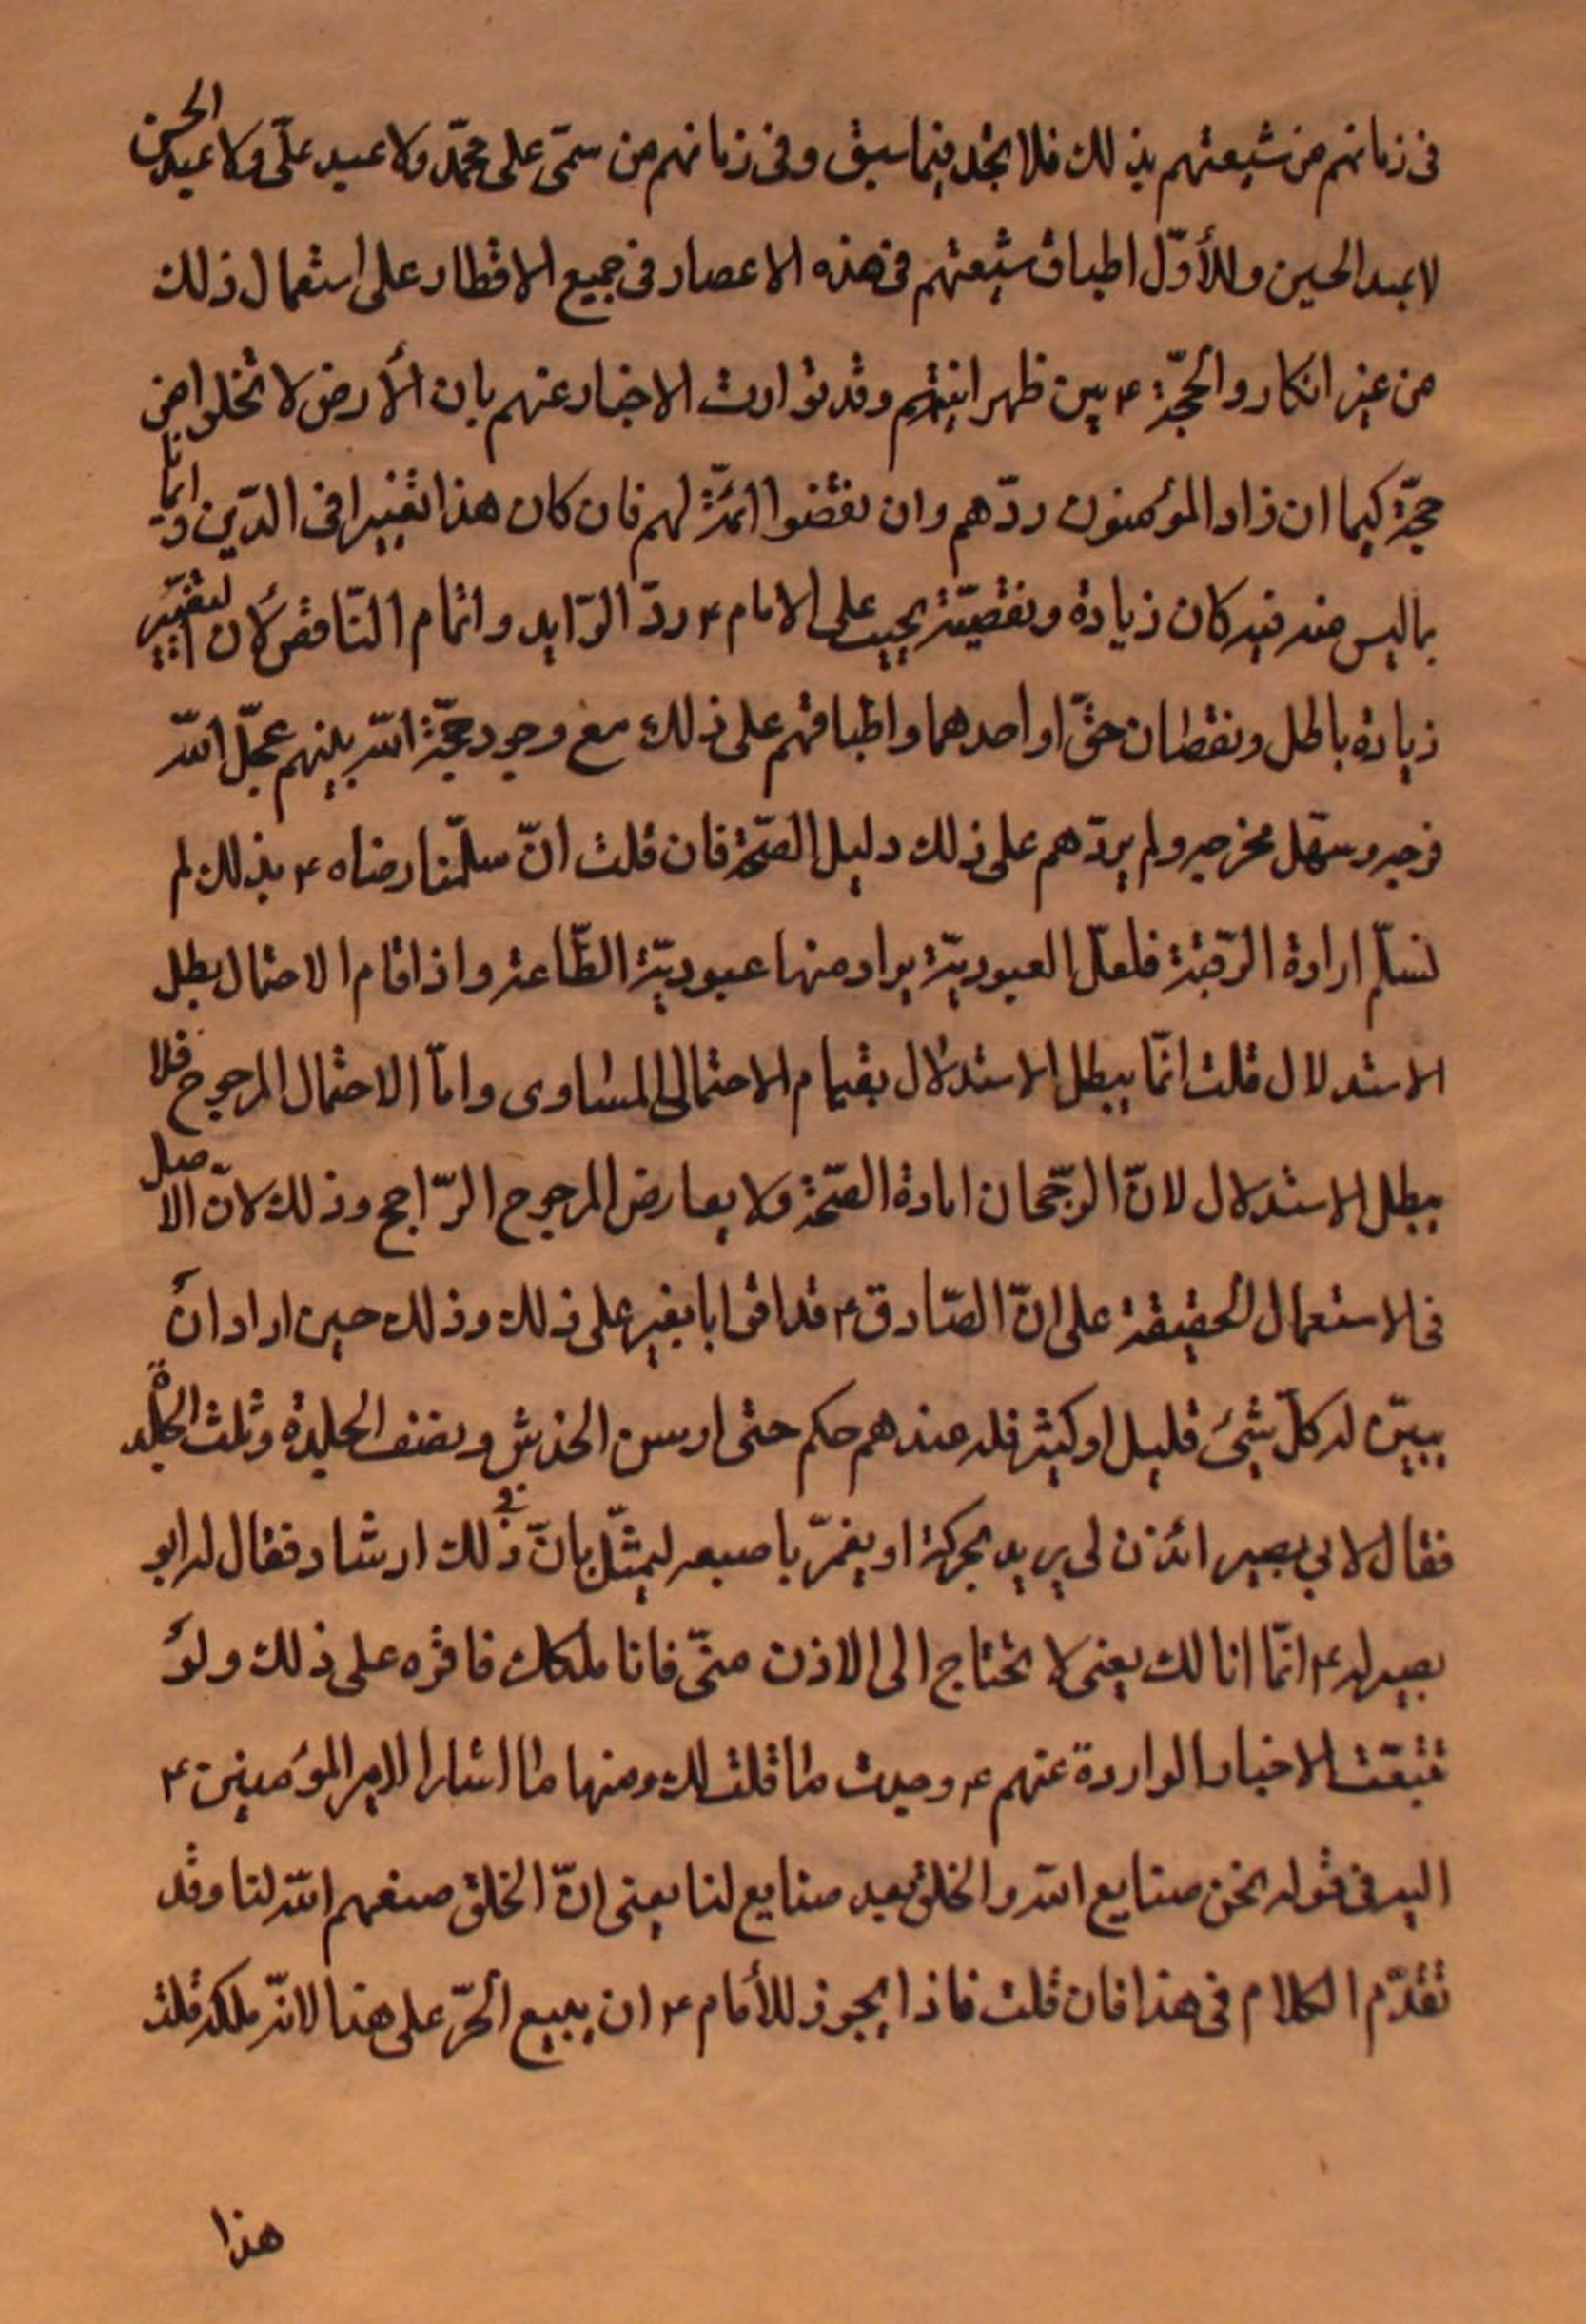 فى زمانهم من شيعتهم بذلك فلا تجد فيما سبق وفى زمانهم من سمّى على محمّد ولا عبد علىّ ولا عبد الحسن
لا عبد الحسين وللأوّل اطباق شيعتهم فى هذه الاعصار فى جميع الاقطار على استعمال ذلك
من غير انكار والحجّة ع بين ظهرانيهم وقد تواردت الاخبار عنهم بان الأرض لا تخلوا من
حجّة كيما ان زاد المؤمنون ردّهم وان نقضوا اتمّه لهم فان كان هذا تغييرا فى الدّين واتيانا
بما ليس منه فيه كان زيادة ونقصية يجب على الامام ع ردّ الزايد واتمام النّاقص لأن التغيير
زيادة باطل ونقصان حقّ او احدهما واطباقهم على ذلك مع وجود حجّة الله بينهم عجّل الله
فرجه وسهّل مخرجه ولم يردّهم على ذلك دليل الصّحّة فان قلت انّ سلّمنا رضاه ع بذلك لم
نسلّم ارادة الرّقيّة فلعلّ العبوديّة يراد منها عبوديّة الطّاعة واذا قام الاحتمال بطل
الاستدلال قلت انّما يبطل الاستدلال بقيام الاحتمال المساوى وامّا الاحتمال المرجوح فلا
يبطل الاستدلال لانّ الرّجحان امارة الصّحّة ولا يعارض المرجوح الرّاجح وذلك لانّ الاصل
فى الاستعمال الحقيقة على انّ الصّادق ع قد اقرّ ابا بصير على ذلك وذلك حين اراد انْ
يبيّن له كلّ شىء قليل او كثير فله عندهم حكم حتى ارش الخدش ونصف الجلدة وثلث الجلدة
فقال لابي بصير ائذن لى يريد يحركه او يغمزّ باصبعه ليمثّل بانّ فى ذلك ارشاد فقال له ابو
بصير له ع انّما انا لك يعنى لا تحتاج الى الاذن منّى فانا ملكك فاقرّه على ذلك ولوْ
تتبّعت الاخبار الواردة عنهم ع وجدت ما قلت لك ومنها ما اشار امير المؤمنين ع
اليه فى قوله نحن صنايع الله والخلق بعد صنايع لنا يعنى انّ الخلق صنعهم الله لنا وقد
تقدّم الكلام فى هذا فان قلت فاذا يجوز للأمام ع ان يبيع الحرّ على هذا لانّه ملكه قلت
هذا